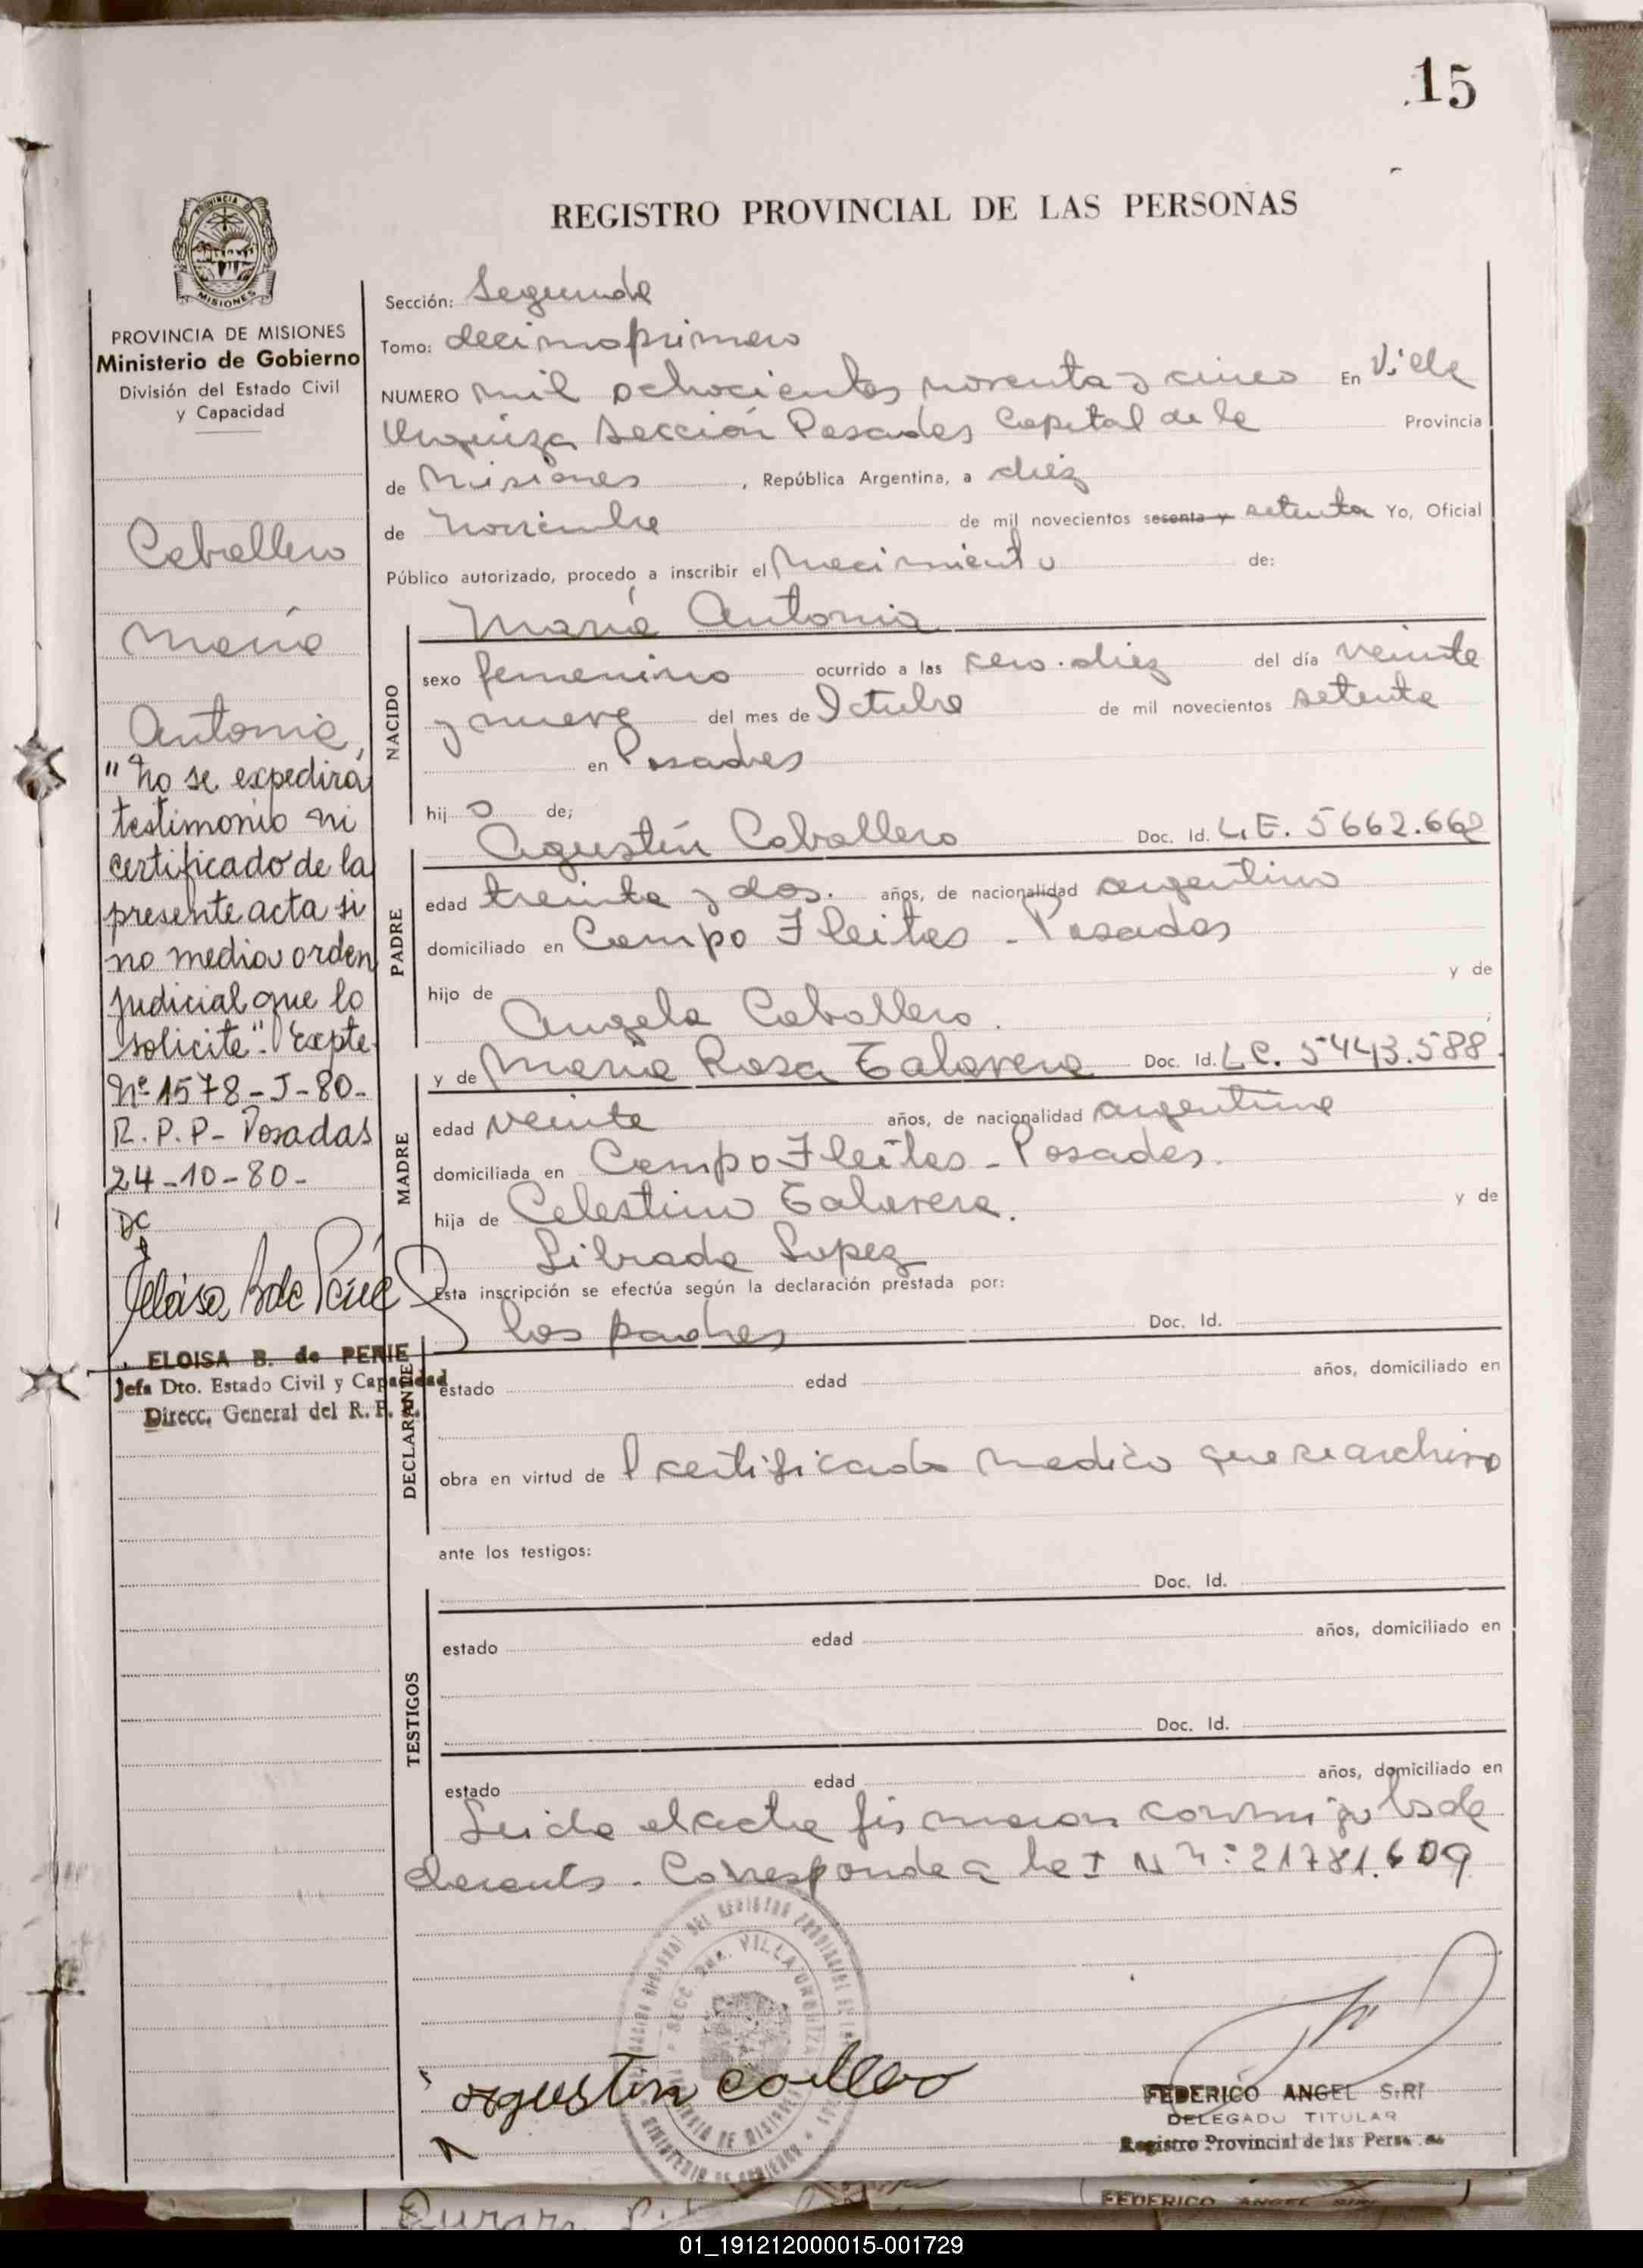 15
REGISTRO PROVINCIAL DE LAS PERSONAS
PROVINCIA DE MISIONES
Ministerio de Gobierno
División del Estado Civil
y Capacidad
Caballero
María
Antonia,
"No se expedirá
testimonio ni
certificado de la
presente acta si
no media orden
judicial que lo
solicite". Expte
Nº 1578-J-80-
R.P.P- Posadas
24-10-80-
DC
ELOISA B. de PERIE
Jefa Dto. Estado Civil y Capacidad
Direcc. General del R. P.
Sección: Segunda
Tomo: decimoprimero
NUMERO mil ochocientos noventa y cinco En Villa
Urquiza Sección Posadas Capital de la Provincia
de Misiones, República Argentina, a diez
de Noviembre de mil novecientos sesenta y setenta Yo, Oficial
Público autorizado, procedo a inscribir el Nacimiento de:
María Antonia
NACIDO
sexo femenino ocurrido a las cero.diez del día veinte
y nueve del mes de Octubre de mil novecientos setenta
en Posadas
hij a de;
PADRE
Agustín Caballero Doc. Id. L.E. 5662.662
edad treinta y dos. años, de nacionalidad argentino
domiciliado en Campo Fleitas - Posadas
hijo de y de
Angela Caballero.
MADRE
y de María Rosa Talavera Doc. Id. L.C. 5443.588.
edad veinte años, de nacionalidad argentina
domiciliada en Campo Fleitas - Posadas.
hija de Celestino Talavera. y de
Librada Lopez
Esta inscripción se efectúa según la declaración prestada por:
DECLARANTE
los padres Doc. Id.
estado edad años, domiciliado en
obra en virtud de certificado medico que se archiva
ante los testigos:
TESTIGOS
Doc. Id.
estado edad años, domiciliado en
Doc. Id.
estado edad años, domiciliado en
Leida el acta firmaron conmigo los de
clarants. Corresponde a la I Nº: 21781.609
VILLA URQUIZA
agustin
FEDERICO ANGEL SIRI
DELEGADO TITULAR
Registro Provincial de las Personas
FEDERICO ANGEL SIRI
01_191212000015-001729